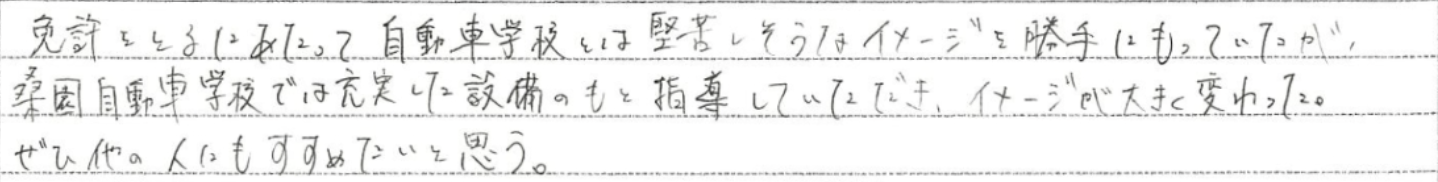 免許をとるにあたって自動車学校とは堅苦しそうなイメージを勝手にもっていたが、
桑園自動車学校では充実した設備のもと指導していただき、イメージが大きく変わった。
ぜひ他の人にもすすめたいと思う。